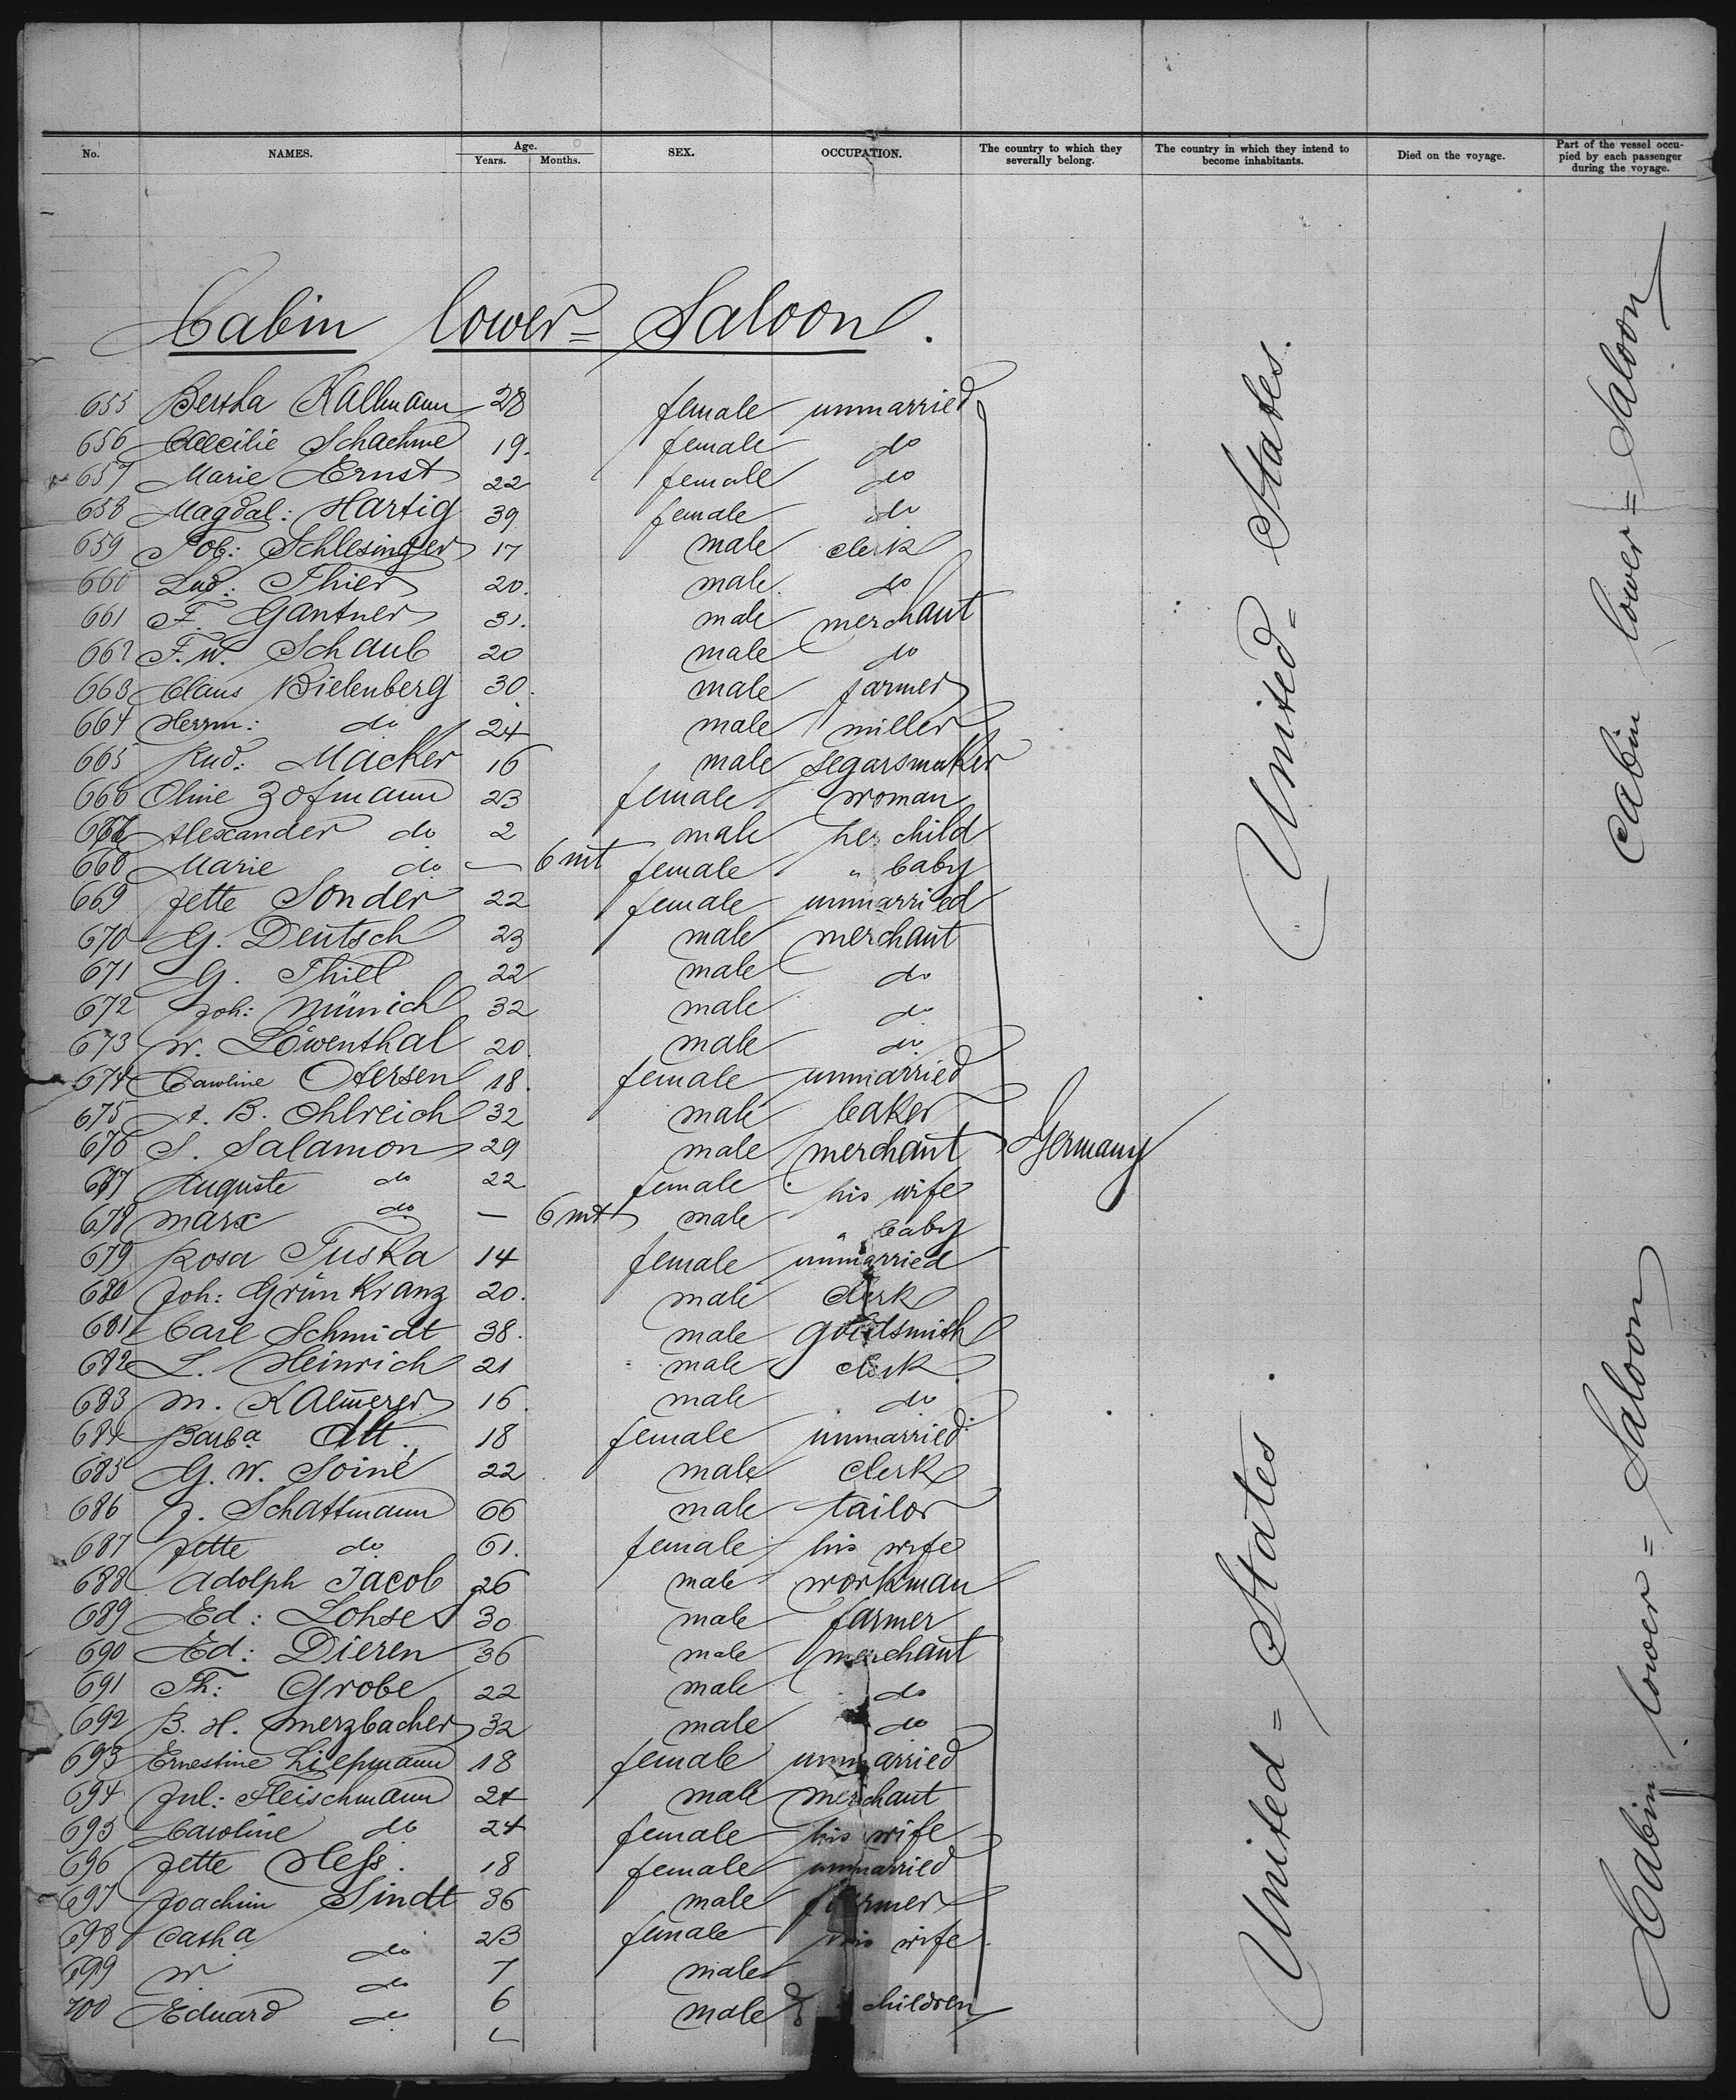 No. NAMES. Age. Years. Months. SEX. OCCUPATION. The country to which they severally belong. The country in which they intend to become inhabitants. Died on the voyage. Part of the vessel occupied by each passenger during the voyage.
Cabin lower = Saloon.
655 Bertha Kallmann 28 female unmarried
656 Caecilie Schachne 19. female do
657 Marie Ernst 22 female do
658 Magdal: Hartig 39 female do
659 Rob: Schlesinger 17 male clerk
660 Lud: Thier 20. male do
661 F. Gantner 31. male merchant
662 F. W. Schaub 20 male do
663 Claus Bielenberg 30. male farmer
664 Herrm: do 24 male miller
665 Rud: Macker 16 male segarsmaker
666 Oline Zofmann 23 female woman
667 Alexander do 2 male her child
668 Marie do — 6 mt female " baby
669 Jette Sonder 22 female unmarried
670 G. Deutsch 23 male merchant
671 G. Thill 22 male do
672 Joh: Münich 32 male do
673 W. Löwenthal 20. male do
674 Caroline Otersen 18. female unmarried
675 A. B. Ohlreich 32 male baker
676 S. Salamon 29 male merchant Germany
677 Auguste do 22 female his wife
678 Marx do — 6 mt male " baby
679 Rosa Tuska 14 female unmarried
680 Joh: Grünkranz 20. male clerk
681 Carl Schmidt 38. male goldsmith
682 L. Heinrich 21 male clerk
683 M. 16. male do
684 Barba Ott. 18 female unmarried
685 G. W. Soiné 22 male clerk
686 J. Schattmann 66 male tailor
687 Jette do 61. female his wife
688 Adolph Jacob 26 male workman
689 Ed: Lohse 30 male farmer
690 Ed: Dieren 36 male merchant
691 Th: Grobe 22 male do
692 B. H. Merzbacher 32 male do
693 Ernestine Liepmann 18 female unmarried
694 Jul: Fleischmann 24 male merchant
695 Caroline do 24 female his wife
696 Jette Hess. 18 female unmarried
697 Joachim Sindt 36 male farmer
698 Catha do 23 female his wife
699 W. do 7 male
700 Eduard do 6 male } children
United = States.
United = States.
Cabin lower = Saloon
Cabin lower = Saloon